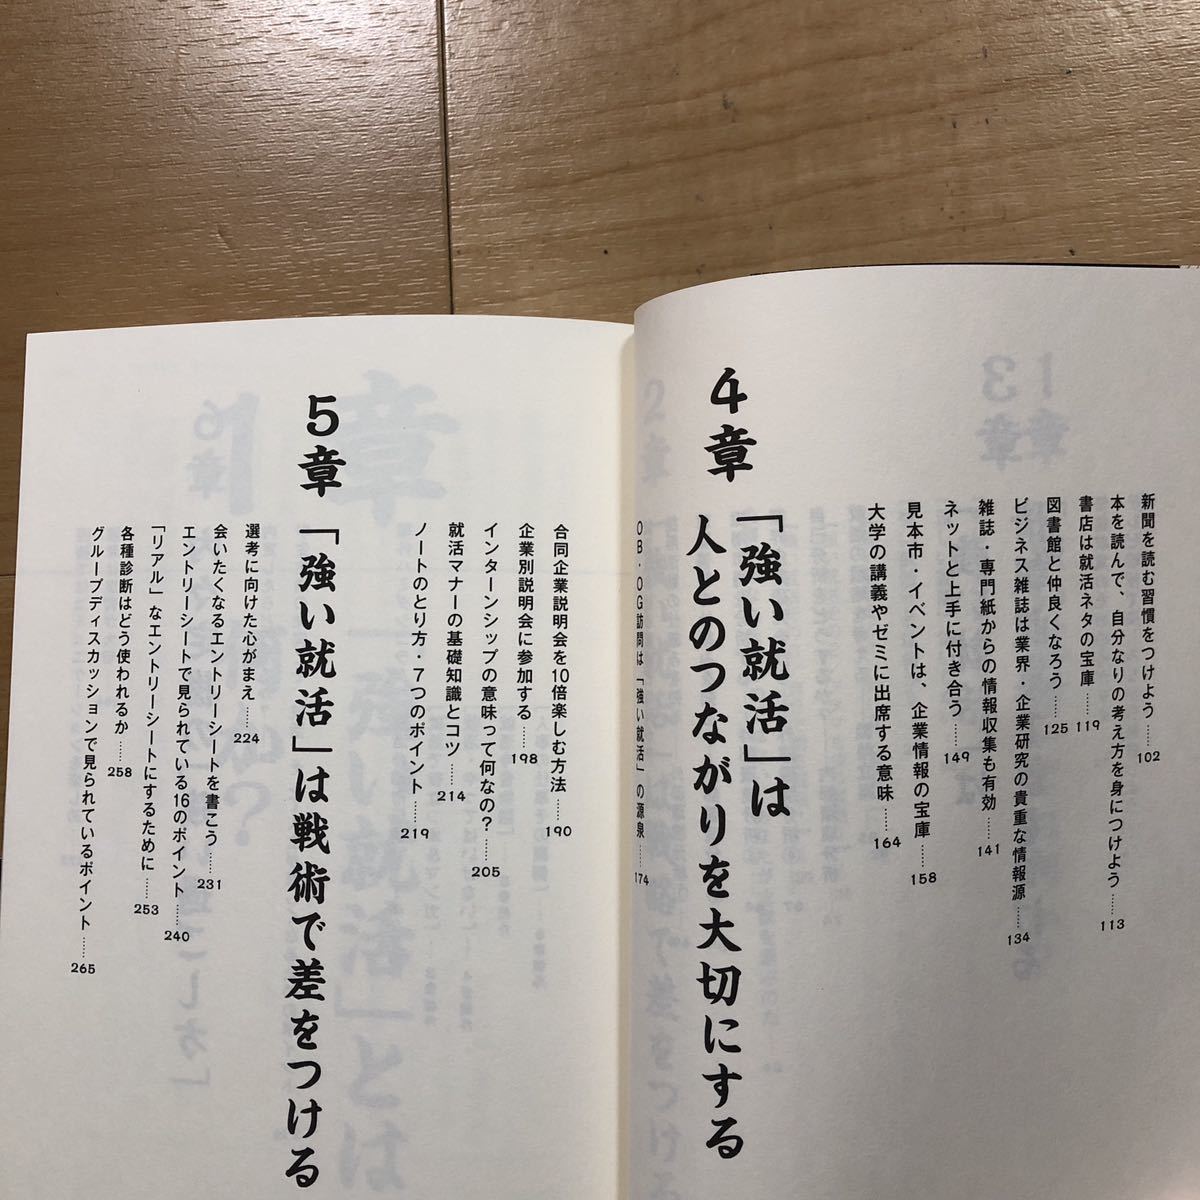 新聞を読む習慣をつけよう……102
本を読んで、自分なりの考え方を身につけよう……113
書店は就活ネタの宝庫……119
図書館と仲良くなろう……125
ビジネス雑誌は業界・企業研究の貴重な情報源……134
雑誌・専門紙からの情報収集も有効……141
ネットと上手に付き合う……149
見本市・イベントは、企業情報の宝庫……158
大学の講義やゼミに出席する意味……164
4章 「強い就活」は
人とのつながりを大切にする
OB・OG訪問は「強い就活」の源泉……174
合同企業説明会を10倍楽しむ方法……190
企業別説明会に参加する……198
インターンシップの意味って何なの?……205
就活マナーの基礎知識とコツ……214
ノートのとり方・7つのポイント……219
5章 「強い就活」は戦術で差をつける
選考に向けた心がまえ……224
会いたくなるエントリーシートを書こう……231
エントリーシートで見られている16のポイント……240
「リアル」なエントリーシートにするために……253
各種診断はどう使われるか……258
グループディスカッションで見られているポイント……265